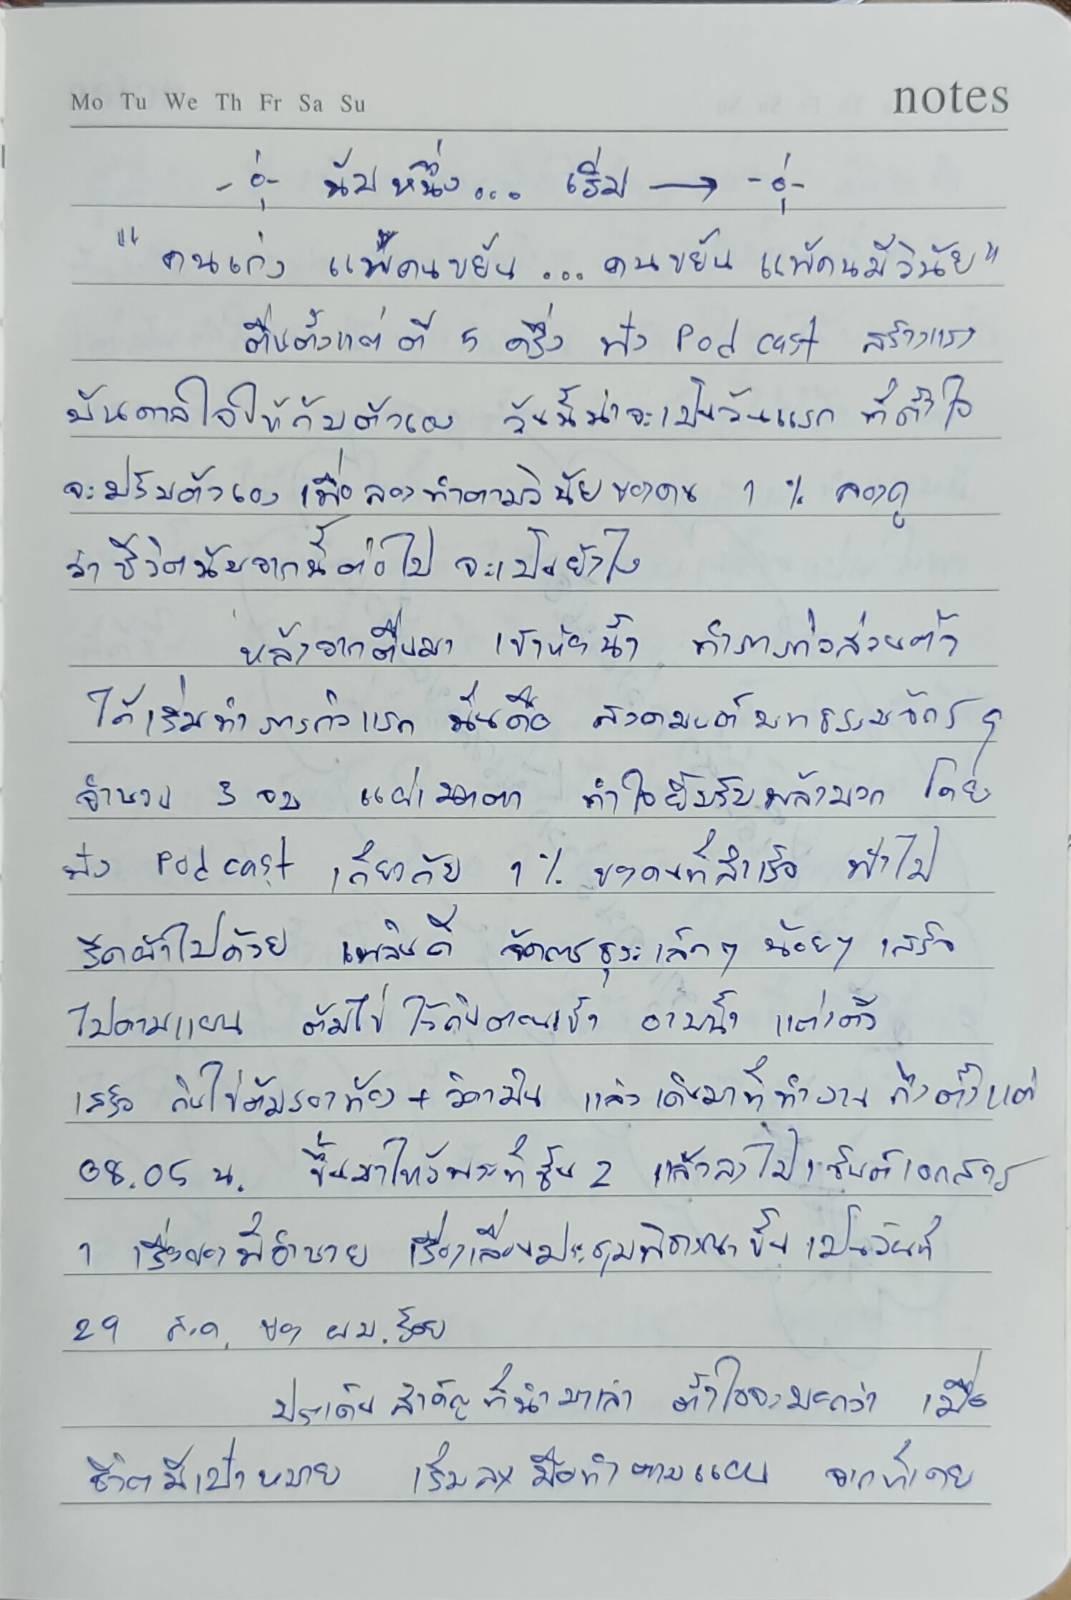 Mo Tu We Th Fr Sa Su
notes
นับหนึ่ง... เริ่ม →
"คนเก่ง แพ้คนขยัน ... คนขยัน แพ้คนมีวินัย"
ตื่นตั้งแต่ ตี 5 ครึ่ง ฟัง Podcast สร้างแรง
บันดาลใจให้กับตัวเอง วันนี้น่าจะเป็นวันแรก ที่ตั้งใจ
จะปรับตัวเอง เพื่อลองทำตามวินัยของคน 1 % ลองดู
ว่าชีวิตนับจากนี้ต่อไป จะเป็นยังไง
หลังจากตื่นมา เข้าห้องน้ำ ทำภารกิจส่วนตัว
ได้เริ่มทำภารกิจแรก นั่นคือ สวดมนต์บทธรรมจักร ฯ
จำนวน 3 จบ แผ่เมตตา ทำใจยิ้มรับพลังบวก โดย
ฟัง Podcast เกี่ยวกับ 1 % ของคนที่สำเร็จ ฟังไป
รีดผ้าไปด้วย เพลินดี จัดการธุระเล็กๆ น้อยๆ เสร็จ
ไปตามแผน ต้มไข่ ไว้กินตอนเช้า อาบน้ำ แต่งตัว
เสร็จ กินไข่ต้มรองท้อง + วิตามิน แล้วเดินมาที่ทำงาน ถึงตั้งแต่
08.05 น. ขึ้นมาไหว้พระที่ชั้น 2 แล้วลงไปเซ็นต์เอกสาร
1 เรื่องของพี่อำนาย เรื่องเลื่อนประชุมพิจารณาขึ้นเป็นวันที่
29 ส.ค. ของ ผบ.ร้อย
ประเด็นสำคัญที่นำมาเล่า ตั้งใจจะบอกว่า เมื่อ
ชีวิตมีเป้าหมาย เริ่มลงมือทำตามแผน จากที่เคย